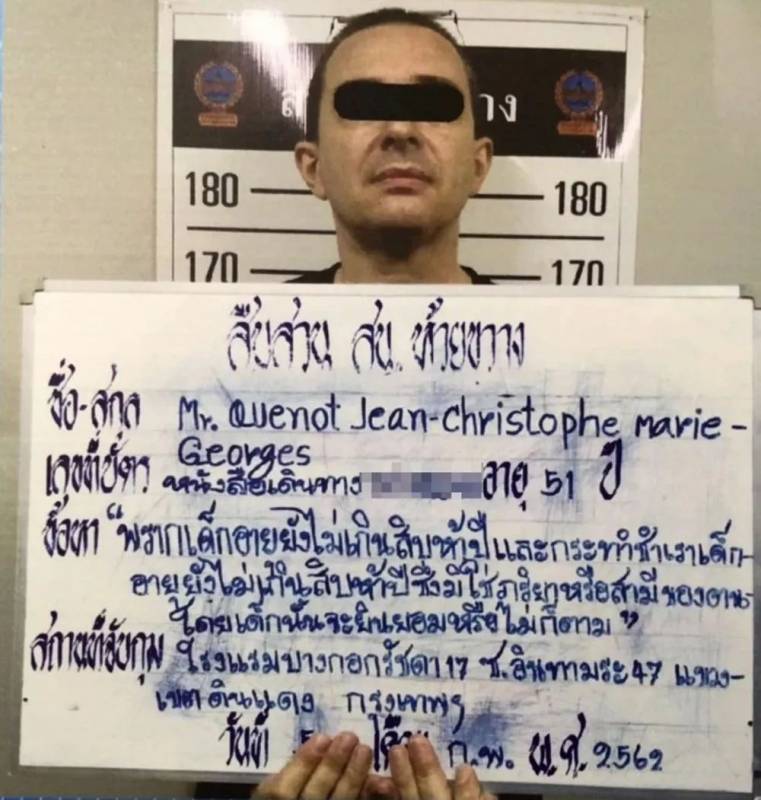 180 180
170 170
สืบสวน สน. ห้วยขวาง
ชื่อ-สกุล Mr. Quenot Jean-Christophe Marie-
Georges
เลขที่บัตร หนังสือเดินทาง อายุ 51 ปี
ข้อหา "พรากเด็กอายุยังไม่เกินสิบห้าปีและกระทำชำเราเด็ก
อายุยังไม่เกินสิบห้าปีซึ่งมิใช่ภริยาหรือสามีของตน
โดยเด็กนั้นจะยินยอมหรือไม่ก็ตาม"
สถานที่จับกุม โรงแรมบางกอกรัชดา17 ซ.อินทามระ47 แขวง-
เขตดินแดง กรุงเทพฯ
วันที่ 5 เดือน ก.พ. พ.ศ. 2562